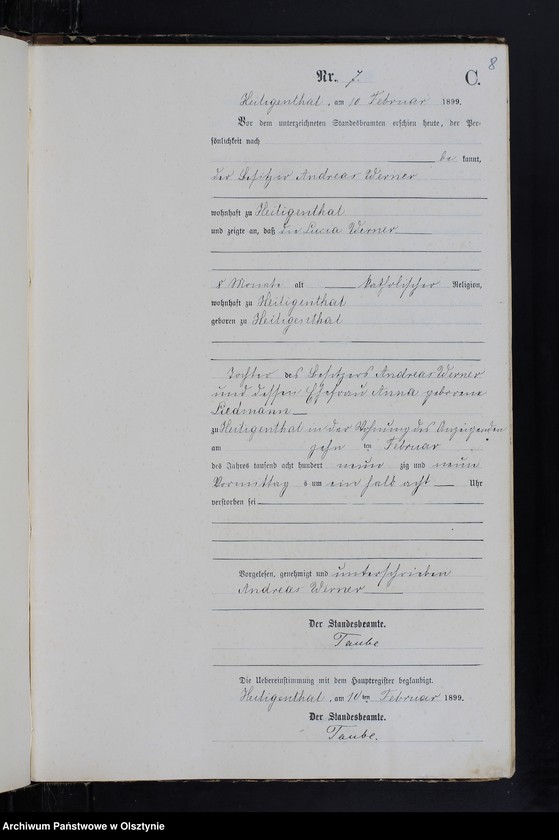 8
Nr. 7. C.
Heiligenthal, am 10 Februar 1899.
Vor dem unterzeichneten Standesbeamten erschien heute, der Per-
sönlichkeit nach
be kannt,
der Besitzer Andreas Werner
wohnhaft zu Heiligenthal
und zeigte an, daß die Lucia Werner
8 Monate alt katholischer Religion,
wohnhaft zu Heiligenthal
geboren zu Heiligenthal
Tochter des Besitzers Andreas Werner
und dessen Ehefrau Anna geborene
Liedmann
zu Heiligenthal in der Wohnung des Anzeigenden
am zehn ten Februar
des Jahres tausend acht hundert neun zig und neun
Vormittag s um ein halb acht Uhr
verstorben sei
Vorgelesen, genehmigt und unterschrieben
Andreas Werner
Der Standesbeamte.
Taube
Die Uebereinstimmung mit dem Hauptregister beglaubigt.
Heiligenthal, am 10ten Februar 1899.
Der Standesbeamte.
Taube.
Archiwum Państwowe w Olsztynie